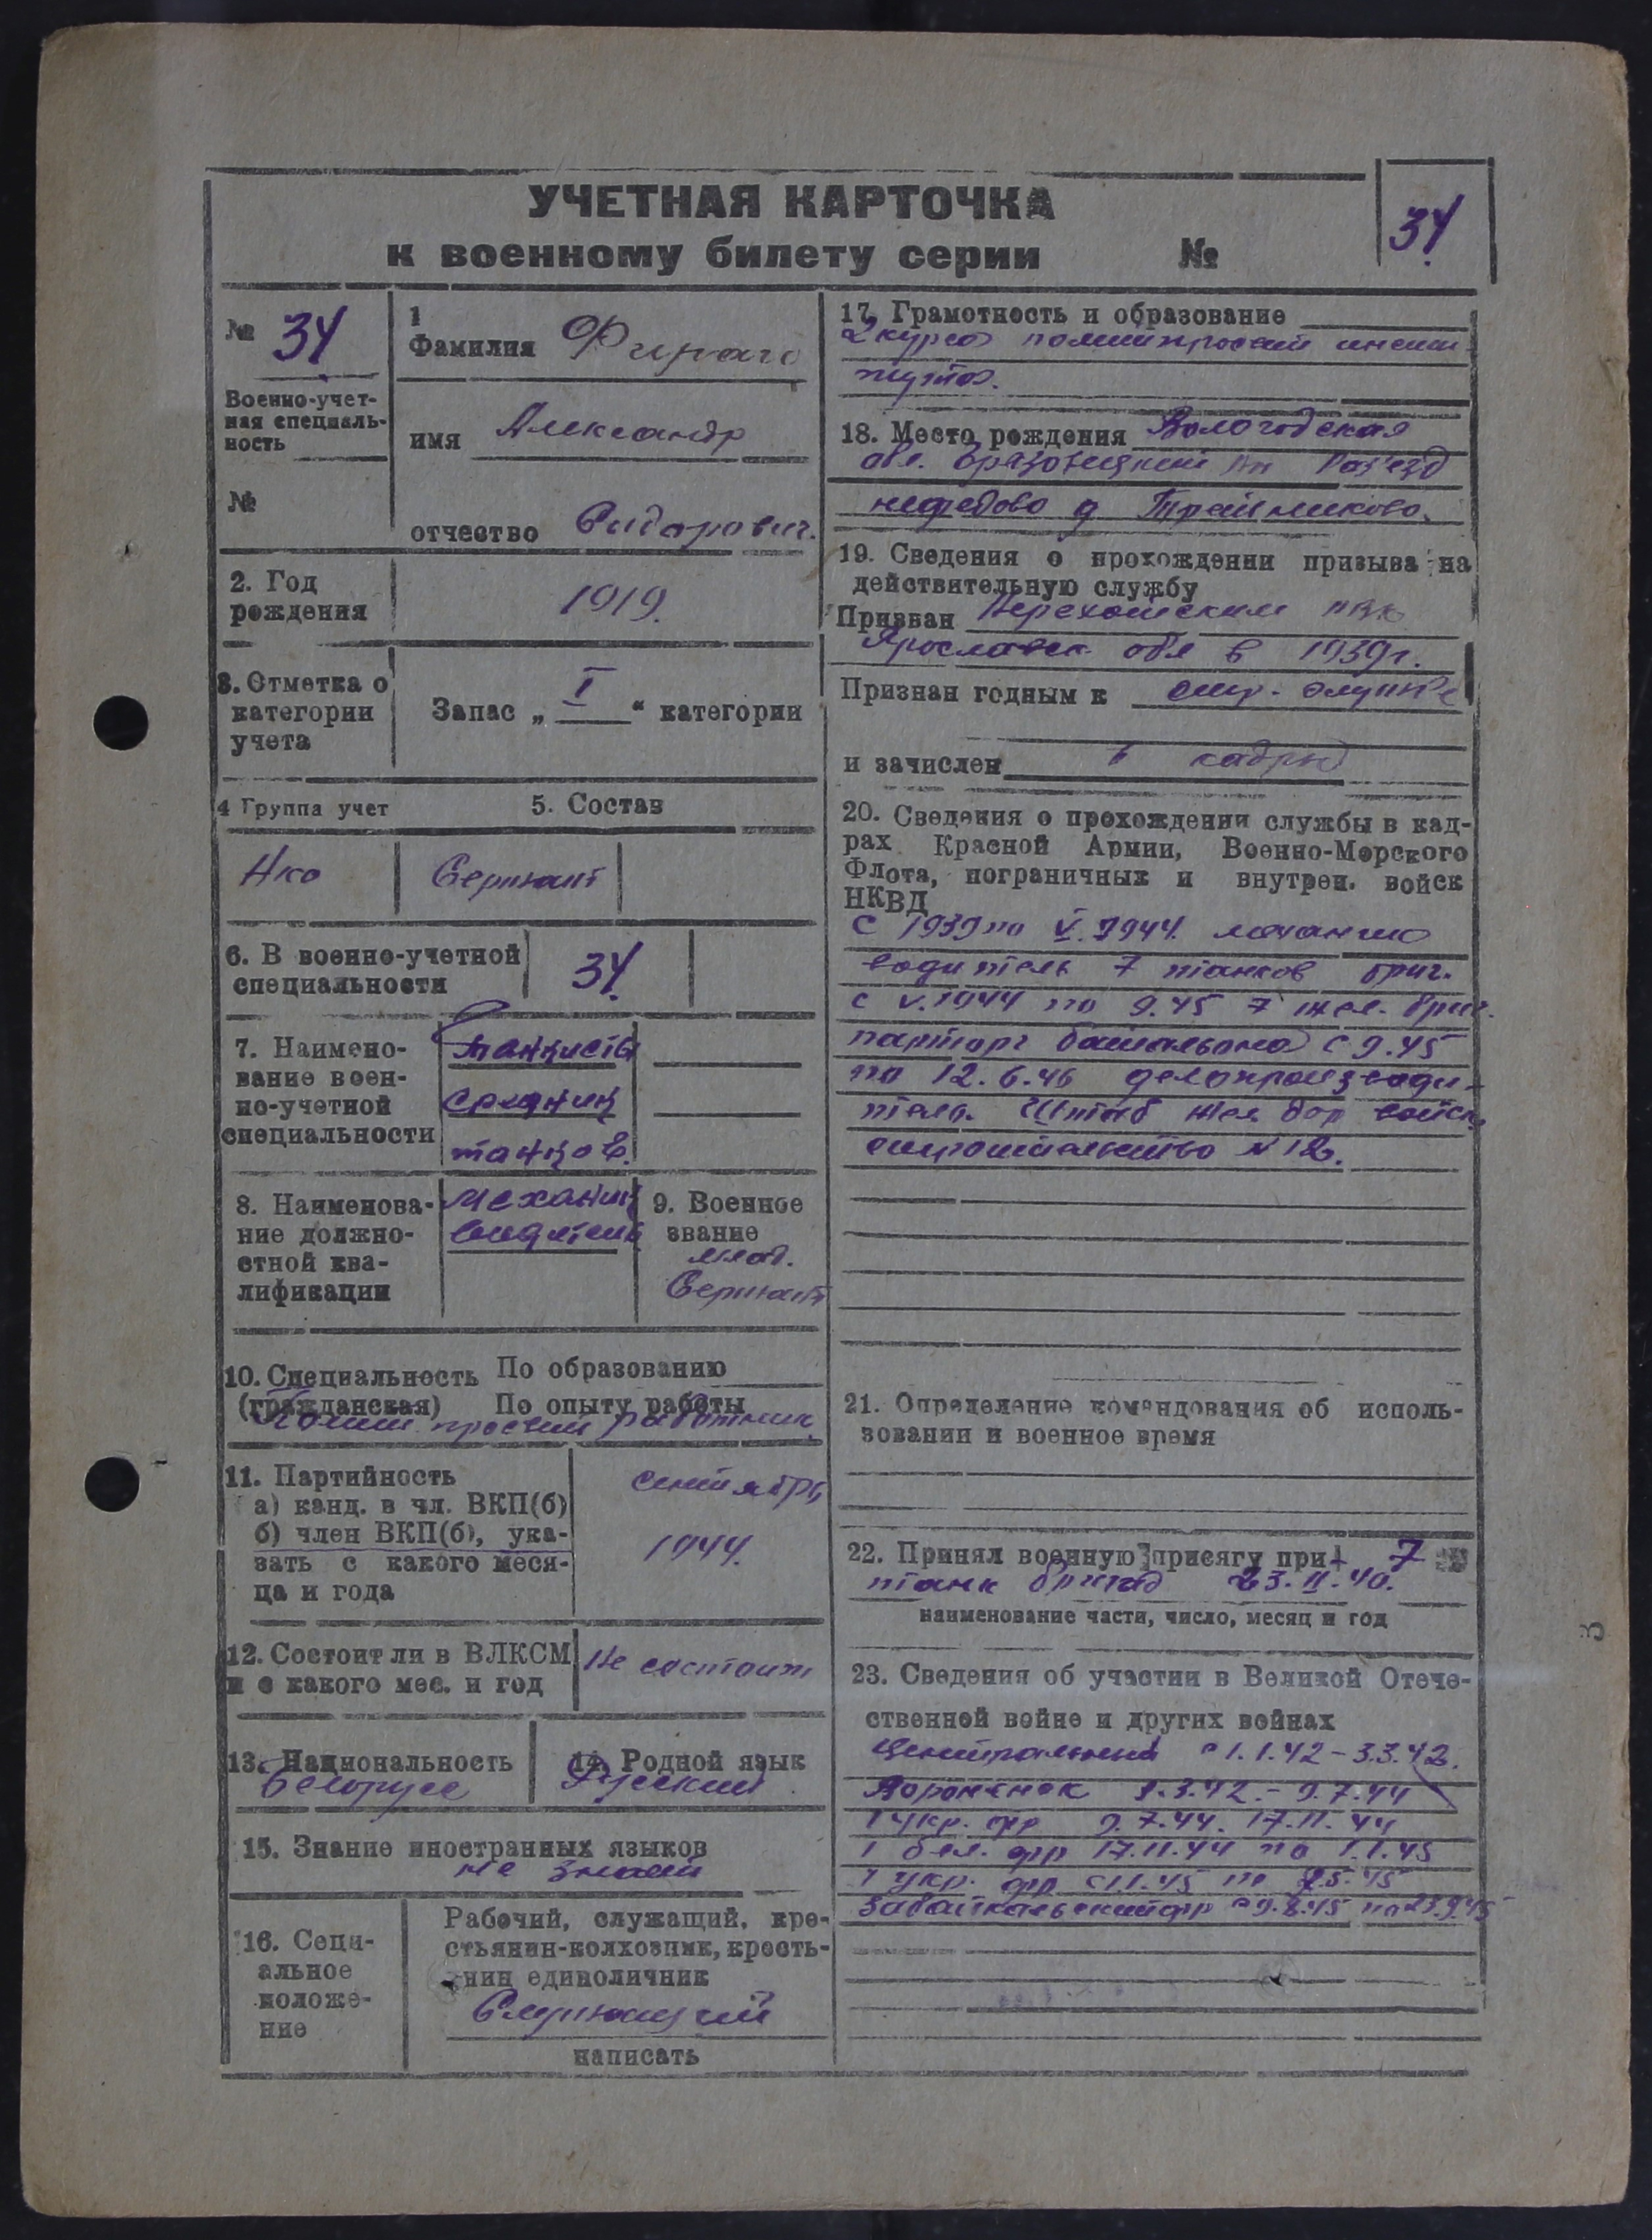 УЧЕТНАЯ КАРТОЧКА
к военному билету серии №
34
№ 34
Военно-учет-
ная специаль-
ность
№
1
Фамилия
имя Александр
отчество Сидорович.
2. Год
рождения
1919.
3. Отметка о
категории
учета
Запас „ I “ категории
4 Группа учет
5. Состав
Нко
Сержант
6. В военно-учетной
специальности
34.
7. Наимено-
вание воен-
но-учетной
специальности
танкисты
средних
танков.
8. Наименова-
ние должно-
стной ква-
лификации
механик
водитель
9. Военное
звание
млад.
Сержант
10. Специальность По образованию
(гражданская) По опыту работы
Полит. просвет работник
11. Партийность
а) канд. в чл. ВКП(б)
б) член ВКП(б), ука-
зать с какого меся-
ца и года
сентябрь
1944.
12. Состоит ли в ВЛКСМ
и с какого мес. и год
Не состоит
13. Национальность
Белорусс
14. Родной язык
Русский
15. Знание иностранных языков
не знает
16. Соци-
альное
положе-
ние
Рабочий, служащий, кре-
стьянин-колхозник, кресть-
нин единоличник
Служащий
написать
17. Грамотность и образование
2 курса политпросвет инсти-
тута.
18. Место рождения Вологодская
обл. Грязовецкий рн Раз'езд
нефедово д
19. Сведения о прохождении призыва на
действительную службу
Призван Нерехотским рвк
Ярославск обл в 1939г.
Признан годным к стр. службе
и зачислен в кадры
20. Сведения о прохождении службы в кад-
рах Красной Армии, Военно-Морского
Флота, пограничных и внутрен. войск
НКВД
С 1939 по V. 1944. механико
водитель 7 танков бриг.
с V.1944 по 9.45 7 жел. бриг.
парторг батальона с 9.45
по 12.6.46 делопроизводи-
тель. Штаб жел дор войск
строительство № 12.
21. Определение командования об исполь-
зовании и военное время
22. Принял военную присягу при 7
танк бригад 23.II.40.
наименование части, число, месяц и год
23. Сведения об участии в Великой Отече-
ственной войне и других войнах
Центральный с 1.1.42 - 3.3.42.
Воронежск 3.3.42. - 9.7.44
1 укр. фр 9.7.44. 17.11.44
1 бел. фр 17.11.44 по 1.1.45
1 укр. фр с 1.1.45 по 9.5.45
Забайкальский фр с 9.8.45 по 23.9.45